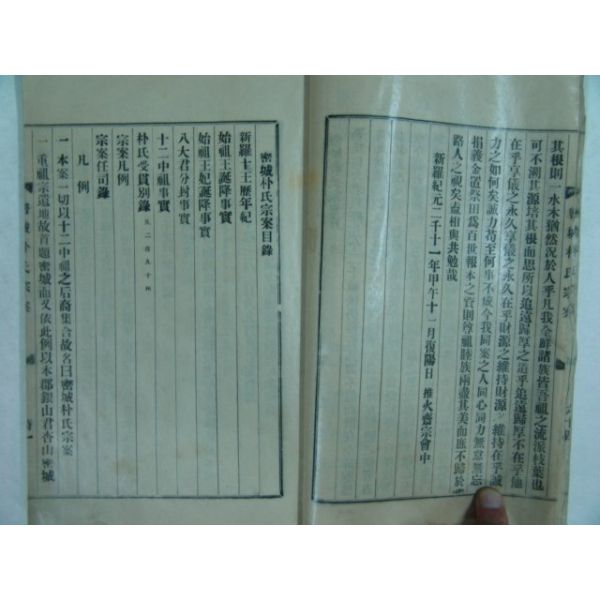 其根則一水木猶然況於人乎凡我全鮮諸族皆吾祖之流派枝葉也
可不溯其源培其根而思所以追遠歸厚之道乎追遠歸厚不在乎他
在乎享儀之永久享儀之永久在乎財源之維持財源之維持在乎誠
力之如何矣誠力苟至何事不成今我同案之人同心同力無怠無忘
捐義金置祭田爲百世報本之資則尊祖睦族兩盡其美而庶不歸於
路人之視矣盍相與共勉哉
新羅紀元二千十一年甲午十二月復陽日 推火齋宗會中
密城朴氏宗案目錄
新羅七王歷年紀
始祖王誕降事實
始祖王妃誕降事實
八大君分封事實
十二中祖事實
朴氏受貫別錄
宗案凡例
宗案任司錄
凡例
一本案一切以十二中祖之后裔集合故名曰密城朴氏宗案
一重祖宗遺地故首題密城而又依此例以本郡銀山君杏山密城
密城朴氏宗案